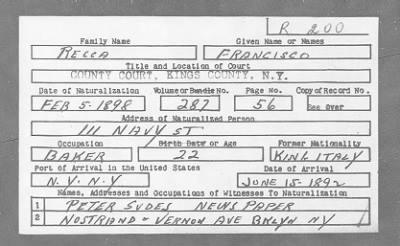 R 200
Family Name Given Name or Names
RECCA FRANCISCO
Title and Location of Court
COUNTY COURT, KINGS COUNTY, N.Y.
Date of Naturalization Volume or Bundle No. Page No. Copy of Record No.
FEB 5-1898 287 56 See Over
Address of Naturalized Person
111 NAVY ST
Occupation Birth Date or Age Former Nationality
BAKER 22 KING ITALY
Port of Arrival in the United States Date of Arrival
N.Y. N.Y JUNE 15-1892
Names, Addresses and Occupations of Witnesses To Naturalization
1 PETER SUDES NEWS PAPER
2 NOSTRAND & VERNON AVE BKLYN NY